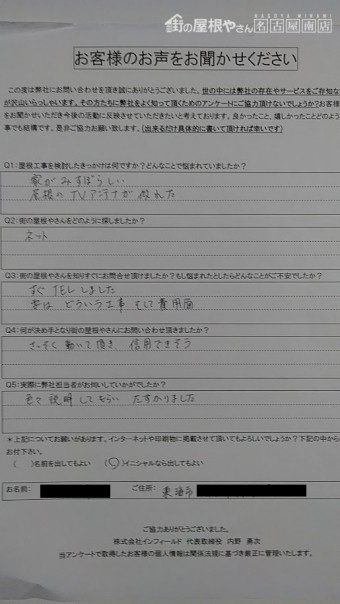 街の屋根やさん NAGOYA MINAMI 名古屋南店
お客様のお声をお聞かせください
この度は弊社にお問い合わせを頂き誠にありがとうございました。世の中には弊社の存在やサービスをご存知な
が沢山いらっしゃいます。その方たちに弊社をよく知って頂くためのアンケートにご協力頂けないでしょうか?お客様
をお聞かせいただき今後の活動に反映させていただきたいと考えております。良かったこと、嬉しかったことどのよう
事でも結構です。是非ご協力お願い致します。(出来るだけ具体的に書いて頂ければ幸いです)
Q1:屋根工事を検討したきっかけは何ですか?どんなことで悩まれていましたか?
家がみすぼらしい
屋根の TVアンテナが倒れた
Q2:街の屋根やさんをどのように探しましたか?
ネット
Q3:街の屋根やさんを知りすぐにお問合せ頂けましたか?もし悩まれたとしたらどんなことがご不安でしたか?
すぐ TELしました
どういう工事 そして費用面
Q4:何が決め手となり街の屋根やさんにお問い合わせ頂きましたか?
さっそく動いて頂き 信用できそう
Q5:実際に弊社担当者がお伺いしていかがでしたか?
色々説明してもらい たすかりました
*上記についてお願いがあります。インターネットや印刷物に掲載させて頂いてもよろしいでしょうか?下記の中から
お付下さい。
( )名前を出してもよい (○)イニシャルなら出してもよい
お名前: ご住所: 東海市
ご協力ありがとうございました。
株式会社インフィールド 代表取締役 内野 勇次
当アンケートで取得したお客様の個人情報は関係法規に基づき厳正に管理いたします。